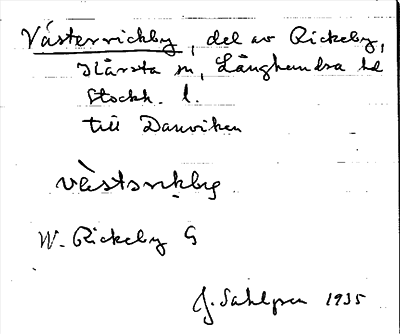 Västerrickby, del av Rickeby,
Kårsta sn, Långhundra hd
Stockh. l.
till Danviken
västsrikby
W. Rickeby G
J. Sahlgren 1935